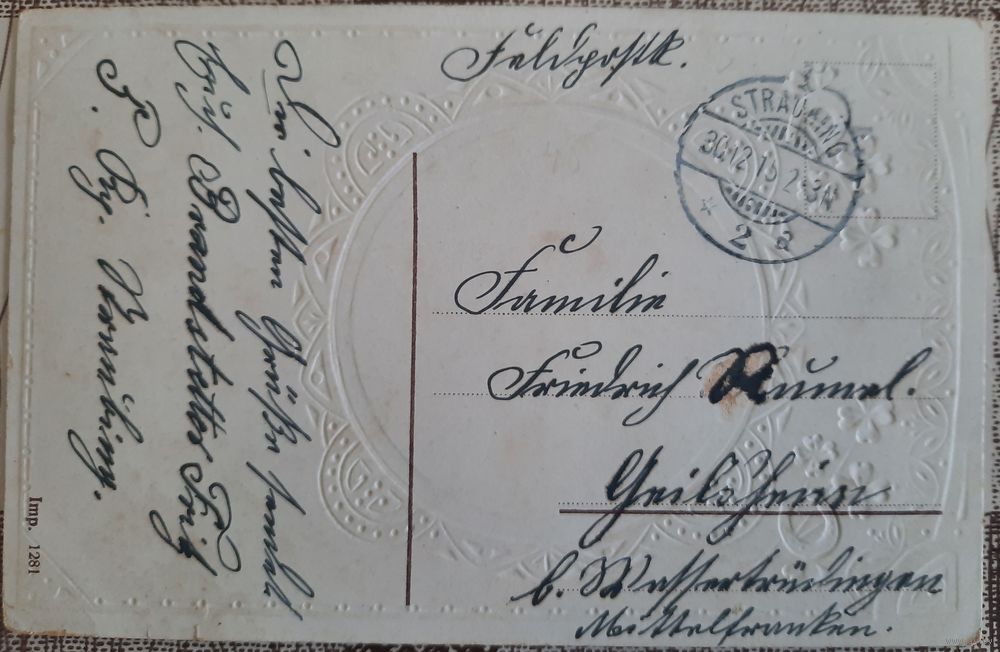 Feldpostk.
STRAUBING
30.12.15 2-3N
* 2 a
Familie
Friedrich Rumel.
Geilsheim
b. Wassertrüdingen
Mittelfranken.
Die besten Grüße sendet
Brandstetter Fritz
Imp. 1281